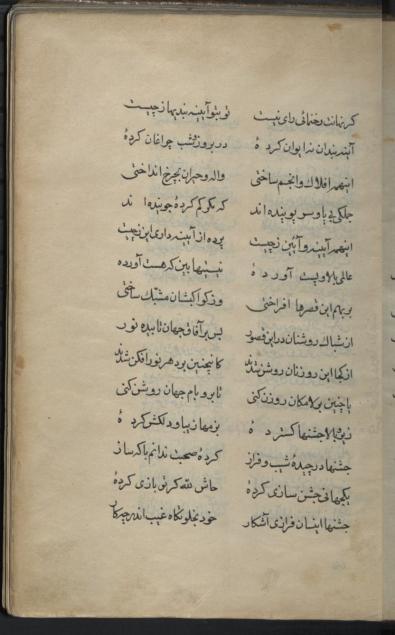 گر نهانت رخنمائی رای نیست تو بتو آیینه بندیها ز چیست
آینه‌بندان نه ایوان کردهٔ در بروز و شب چراغان کردهٔ
اینهمه افلاک و انجم ساختی واله و حیران بچرخ انداختی
جملگی بی پا و سر پوینده اند که مگر گم کردهٔ جوینده اند
اینهمه آیینه و آیین ز چیست پرده از آیینه داری این ز چیست
عالمی بالا و پست آوردهٔ نیستیها بین که هست آوردهٔ
برهم این قصرها افراختی وز کواکبشان مشبک ساختی
از شباک روشنان در این قصور بس بر آفاق جهان تابیده نور
از کجا این روزنان روشن شدند کاینچنین بر دهر نور افکن شدند
تا چنین بر لامکان روزن کنی تا بر و بام جهان روشن کنی
زیر و بالا جشنها گستردهٔ بزمها زیبا و دلکش کردهٔ
جشنها در چیدهٔ شیب و فراز کردهٔ صحبت ندانم با که ساز
یکجهانی جشن سازی کردهٔ حاش لله گر تو بازی کردهٔ
جشنها اینسان فرازی آشکار خود بخلوتگاه غیب اندر چکار